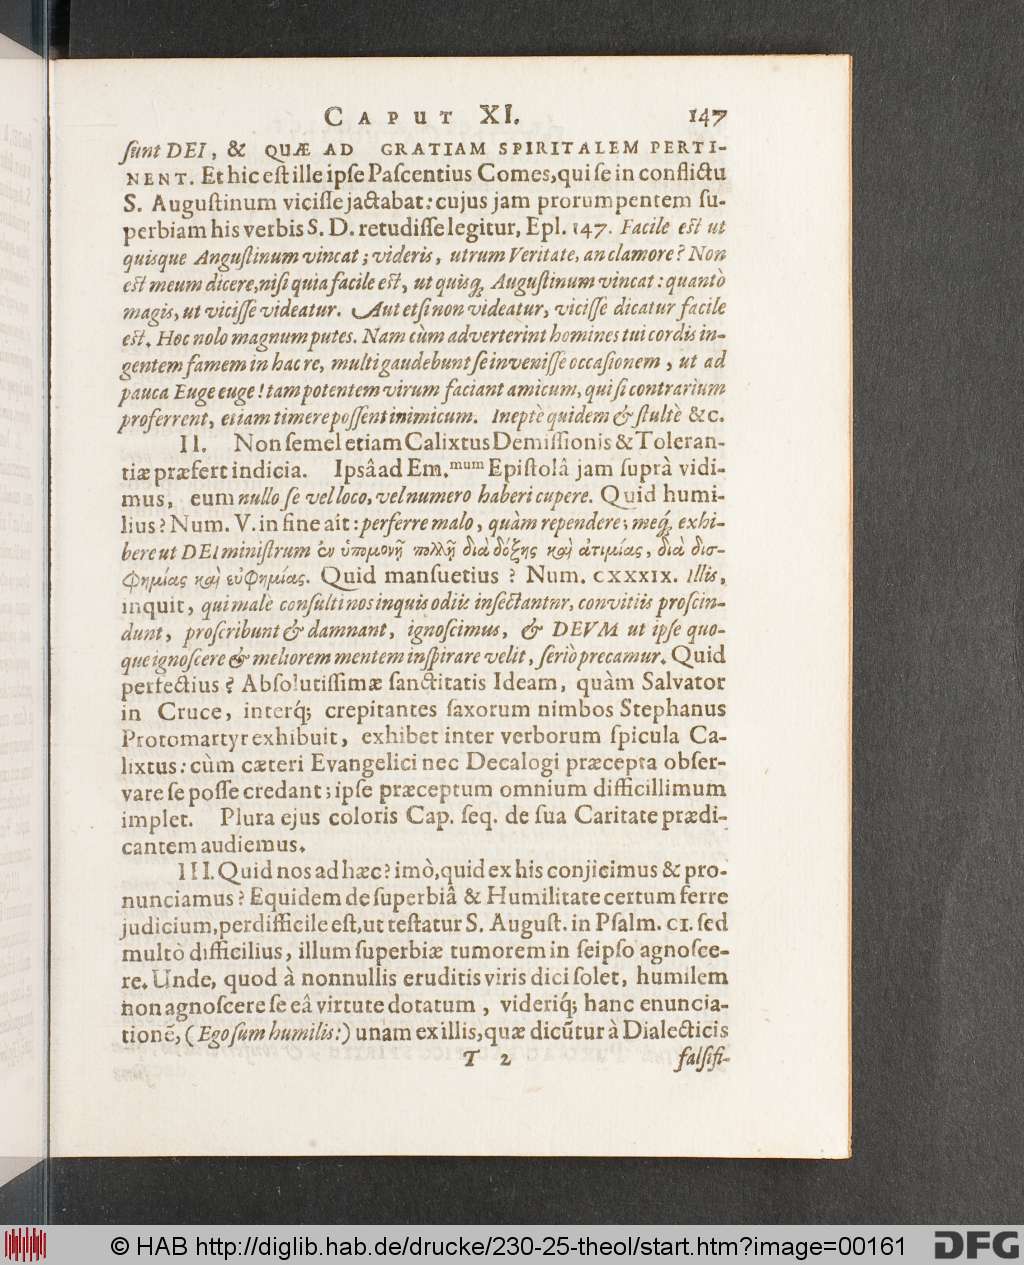 CAPUT XI. 147
ſunt DEI, & QUÆ AD GRATIAM SPIRITALEM PERTI-
NENT. Et hic eſt ille ipſe Paſcentius Comes, qui ſe in conflictu
S. Auguſtinum viciſſe jactabat: cujus jam prorumpentem ſu-
perbiam his verbis S. D. retudiſſe legitur, Epl. 147. Facile eſt ut
quisque Anguſtinum vincat; videris, utrum Veritate, an clamore? Non
eſt meum dicere, niſi quia facile eſt, ut quisq; Auguſtinum vincat: quantò
magis, ut viciſſe videatur. Aut etſi non videatur, viciſſe dicatur facile
eſt. Hoc nolo magnum putes. Nam cùm adverterint homines tui cordis in-
gentem famem in hac re, multi gaudebunt ſe inveniſſe occaſionem, ut ad
pauca Euge euge! tam potentem virum faciant amicum, qui ſi contrarium
proferrent, etiam timere poſſent inimicum. Ineptè quidem & ſtultè &c.
II. Non ſemel etiam Calixtus Demiſſionis & Toleran-
tiæ præfert indicia. Ipsâ ad Em.mum Epiſtolâ jam ſuprà vidi-
mus, eum nullo ſe vel loco, vel numero haberi cupere. Quid humi-
lius? Num. V. in fine ait: perferre malo, quàm rependere; meq́; exhi-
bere ut DEI miniſtrum ἐν ὑπομονῇ πολλῇ διὰ δόξης καὶ ἀτιμίας, διὰ δυσ-
φημίας καὶ εὐφημίας. Quid manſuetius? Num. CXXXIX. Illis,
inquit, qui malè conſulti nos inquis odiis inſectantnr, convitiis proſcin-
dunt, proſcribunt & damnant, ignoſcimus, & DEVM ut ipſe quo-
que ignoſcere & meliorem mentem inſpirare velit, ſeriò precamur. Quid
perfectius? Abſolutiſſimæ ſanctitatis Ideam, quàm Salvator
in Cruce, interq́; crepitantes ſaxorum nimbos Stephanus
Protomartyr exhibuit, exhibet inter verborum ſpicula Ca-
lixtus: cùm cæteri Evangelici nec Decalogi præcepta obſer-
vare ſe poſſe credant; ipſe præceptum omnium difficillimum
implet. Plura ejus coloris Cap. ſeq. de ſua Caritate prædi-
cantem audiemus.
III. Quid nos ad hæc? imò, quid ex his conjicimus & pro-
nunciamus? Equidem de ſuperbiâ & Humilitate certum ferre
judicium, perdifficile eſt, ut teſtatur S. Auguſt. in Pſalm. CI. ſed
multò difficilius, illum ſuperbiæ tumorem in ſeipſo agnoſce-
re. Unde, quod à nonnullis eruditis viris dici ſolet, humilem
non agnoſcere ſe eâ virtute dotatum, videriq́; hanc enuncia-
tionẽ, (Ego ſum humilis:) unam ex illis, quæ dicũtur à Dialecticis
T 2 falſifi-
© HAB http://diglib.hab.de/drucke/230-25-theol/start.htm?image=00161
DFG